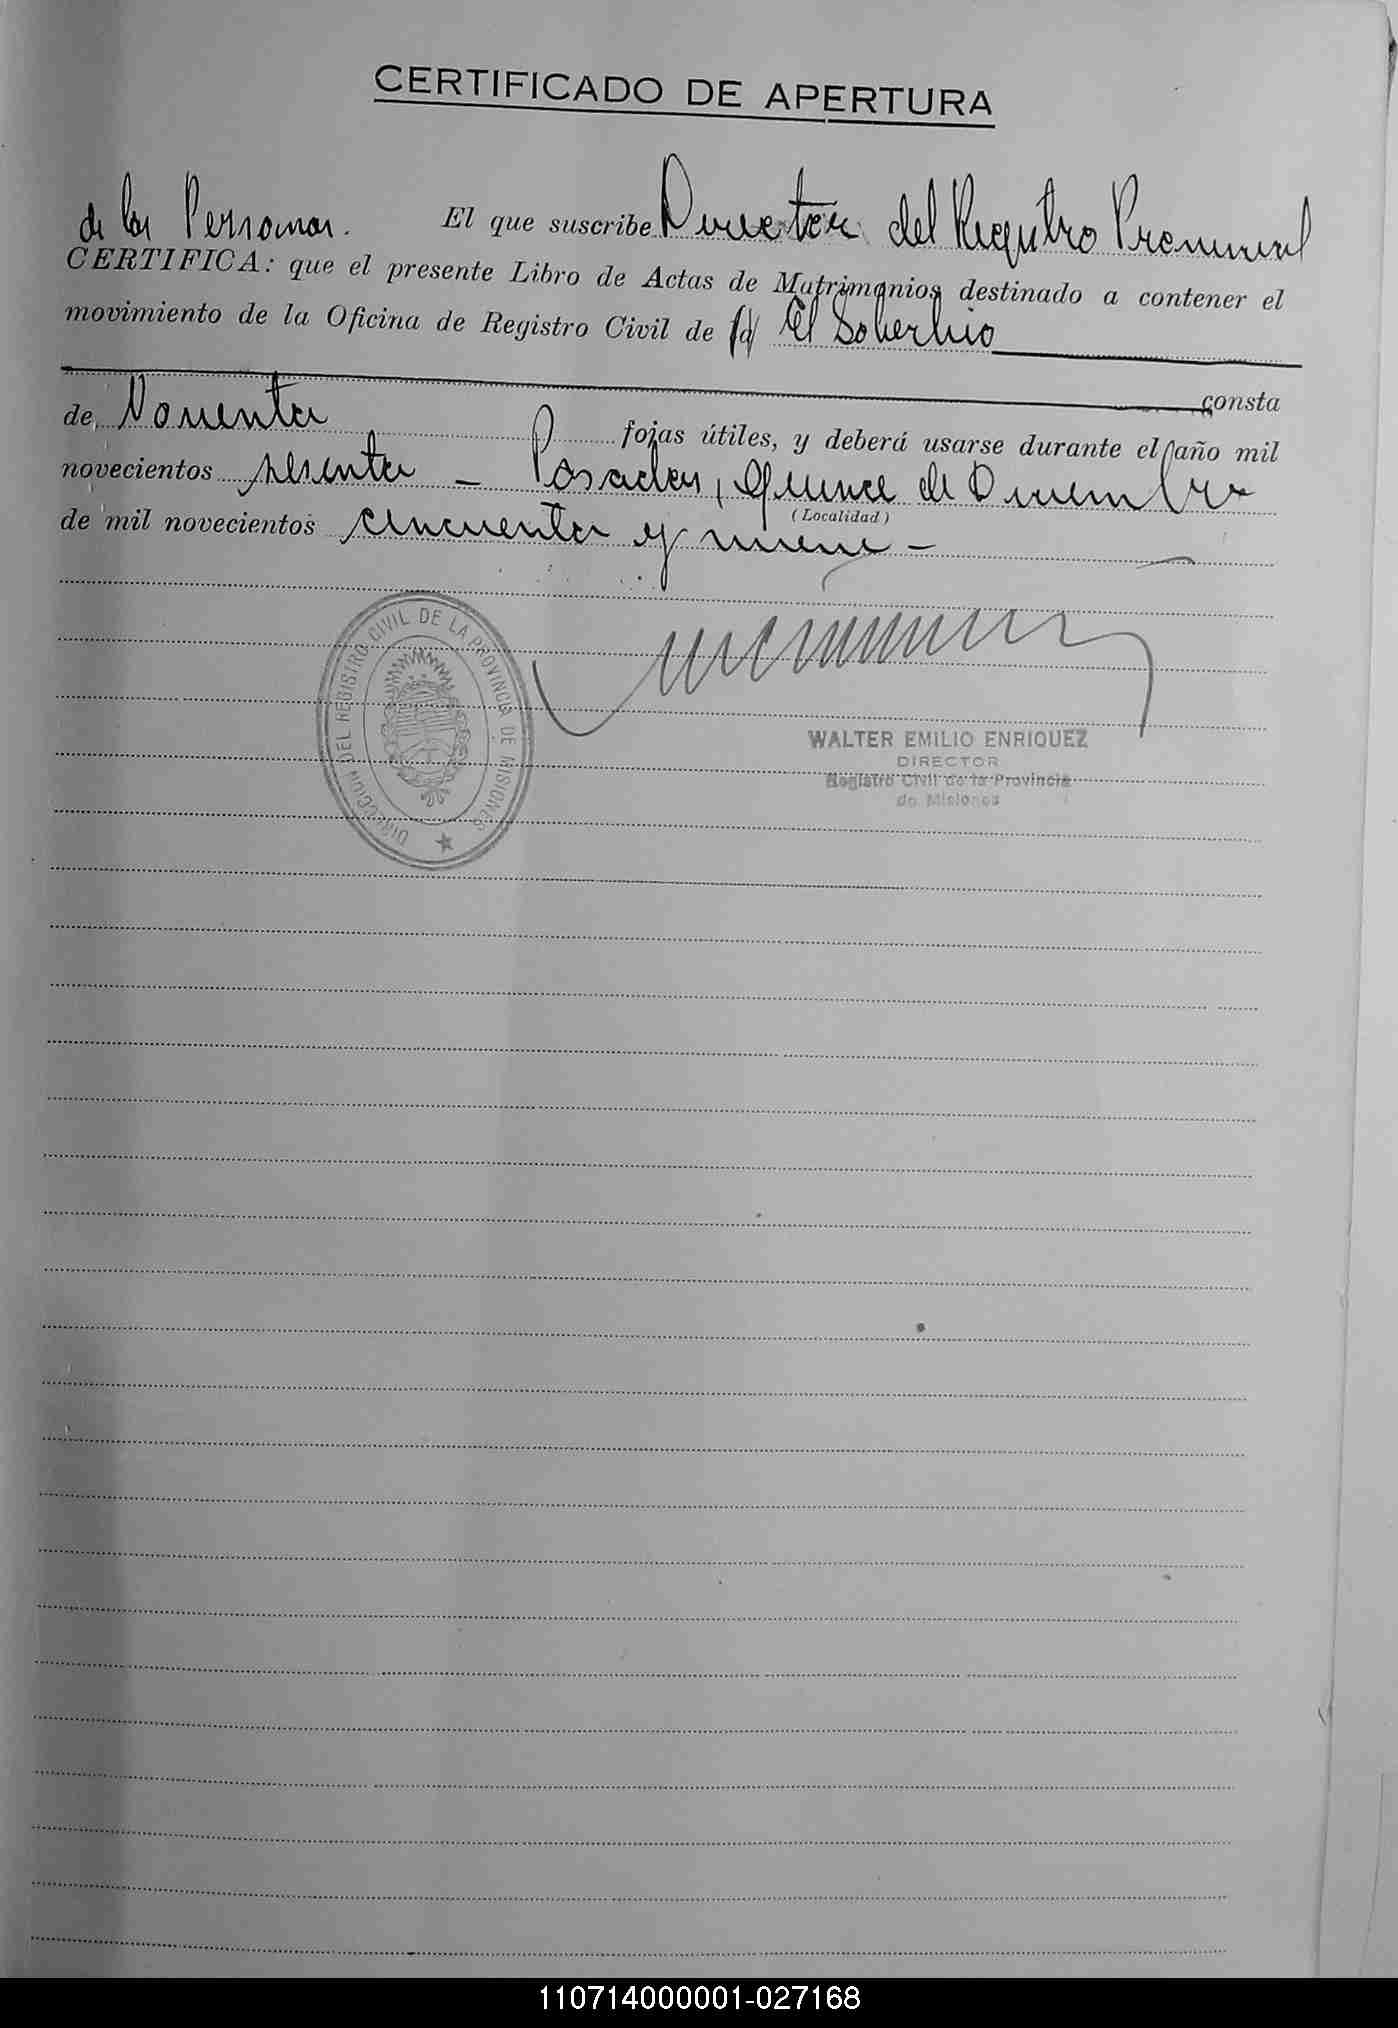 CERTIFICADO DE APERTURA
de las Personas. El que suscribe Director del Registro Provincial
CERTIFICA: que el presente Libro de Actas de Matrimonios destinado a contener el
movimiento de la Oficina de Registro Civil de El Soberbio
consta
de Noventa fojas útiles, y deberá usarse durante el año mil
novecientos sesenta - Posadas, Quince de Diciembre
(Localidad)
de mil novecientos cincuenta y nueve -
DIRECCION DEL REGISTRO CIVIL DE LA PROVINCIA DE MISIONES
WALTER EMILIO ENRIQUEZ
DIRECTOR
Registro Civil de la Provincia
de Misiones
110714000001-027168